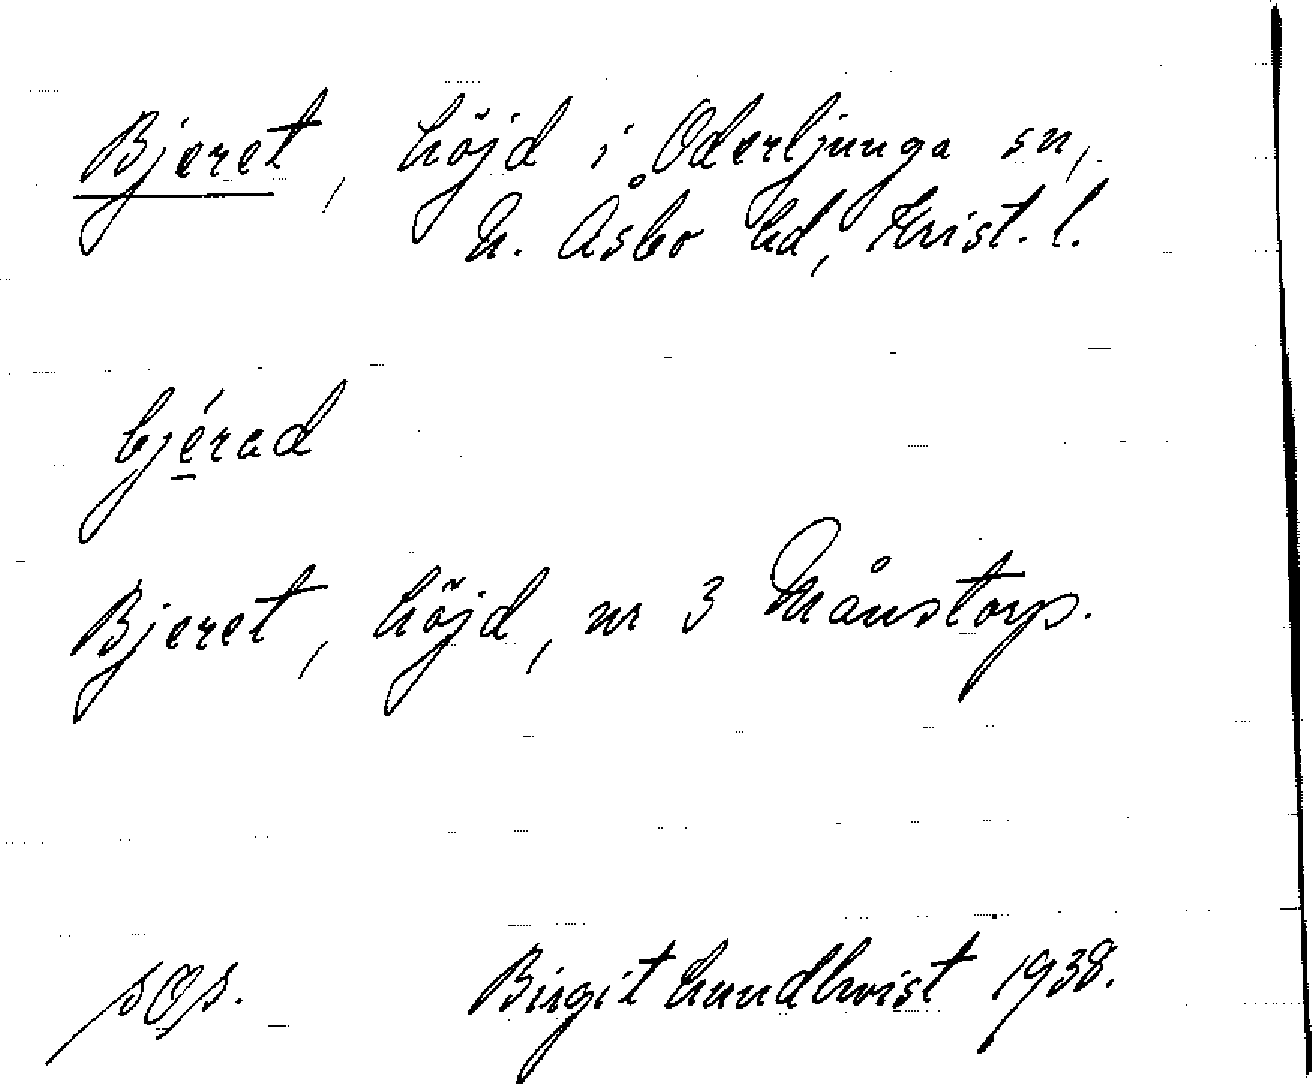 Bjeret, höjd i Oderljunga sn,
N. Åsbo hd, Krist. l.
bjérad
Bjeret, höjd, nr 3 Månstorp.
Birgit Lundkvist 1938.